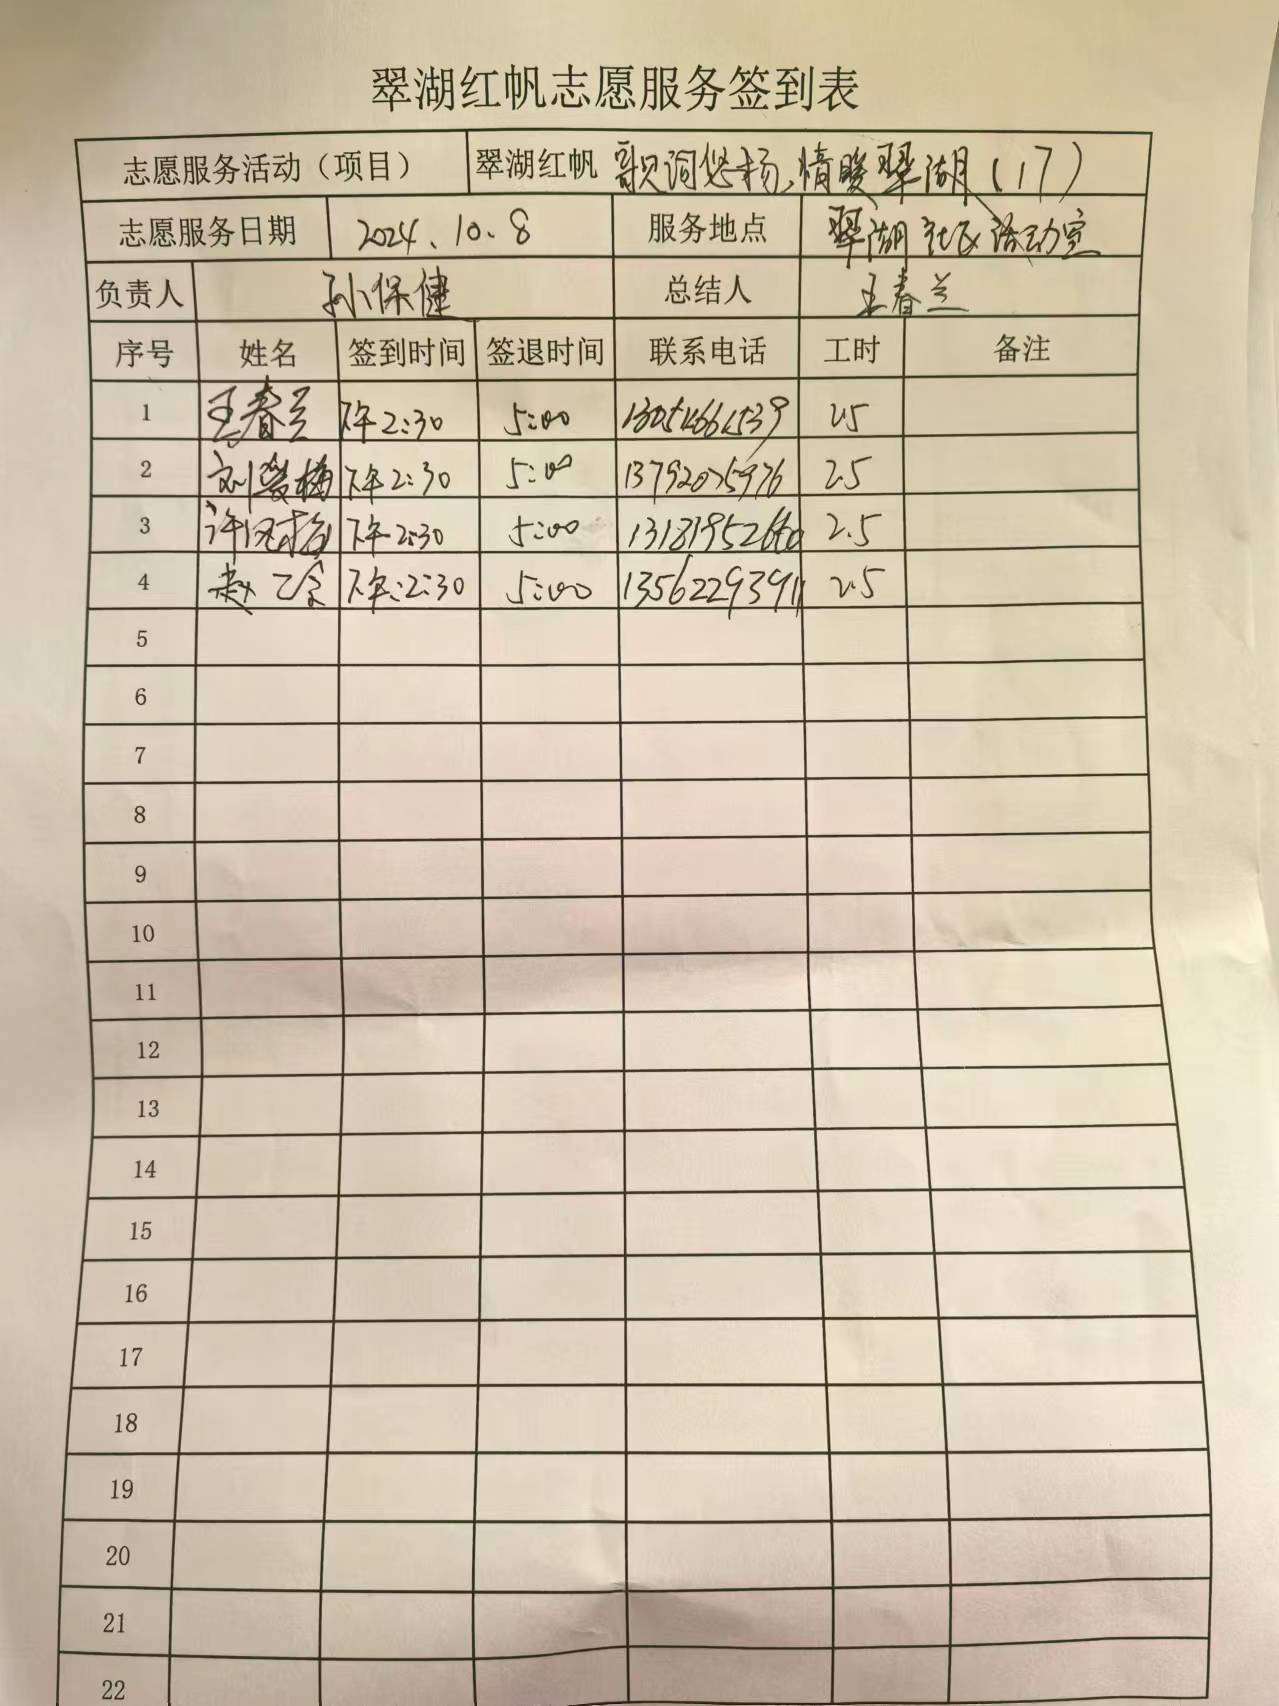 翠湖红帆志愿服务签到表
志愿服务活动（项目） 翠湖红帆 歌词悠扬、情暖翠湖（17）
志愿服务日期 2024.10.8 服务地点 翠湖社区活动室
负责人 孙保健 总结人 王春兰
序号 姓名 签到时间 签退时间 联系电话 工时 备注
1 王春兰 下午2:30 5:00 2.5
2 刘爱梅 下午2:30 5:00 2.5
3 许 下午2:30 5:00 13181952660 2.5
4 赵 下午:2:30 5:00 13562293911 2.5
5
6
7
8
9
10
11
12
13
14
15
16
17
18
19
20
21
22